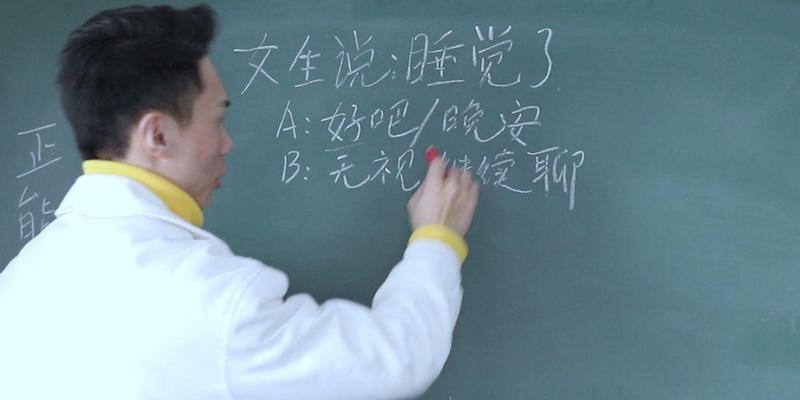 女生说:睡觉了
A:好吧/晚安
B:无视 继续聊
正
能